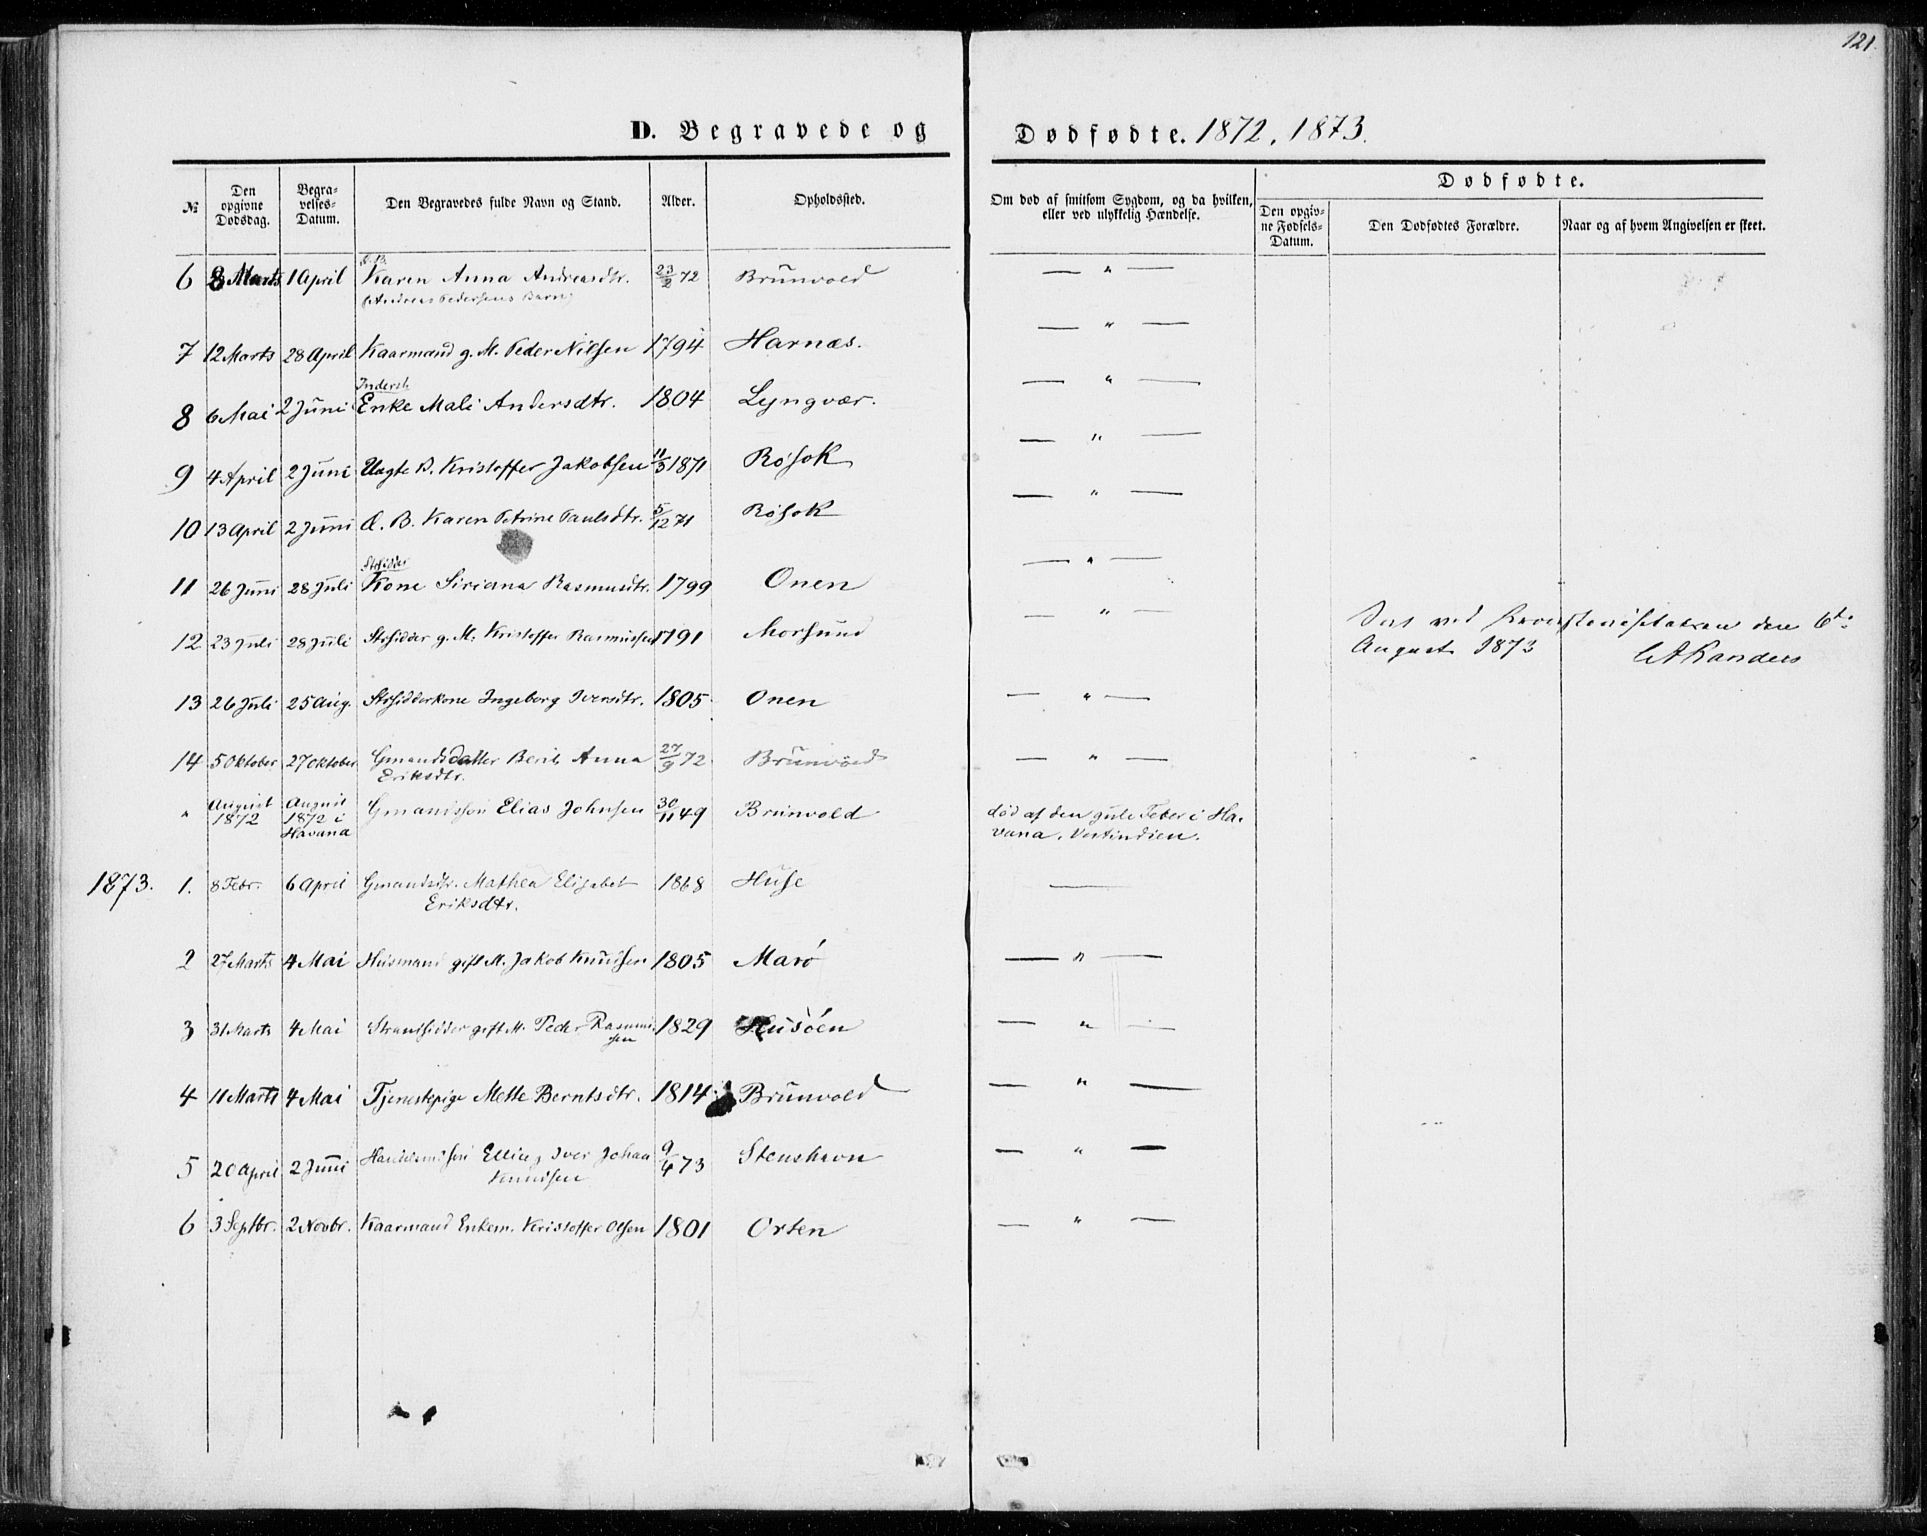 121.
D. Begravede og Dødfødte. 1872, 1873.
№ Den opgivne Dødsdag. Begravelses-Datum. Den Begravedes fulde Navn og Stand. Alder. Opholdssted. Om død af smitsom Sygdom, og da hvilken, eller ved ulykkelig Hændelse. Dødfødte.
Den opgivne Fødsels-Datum. Den Dødfødtes Forældre. Naar og af hvem Angivelsen er skeet.
6 8 Marts 1 April Karen Anna Andreasdtr. 23/2 72 Brunvold — " —
(Andreas Pedersens Barn)
7 12 Marts 28 April Kaarmand g. M. Peder Nilsen 1794 Harnæs. — " —
Inderst
8 6 Mai 2 Juni Enke Mali Andersdtr. 1804 Lyngvær. — " —
9 4 April 2 Juni Uægte B. Kristoffer Jakobsen 11/3 1871 Røsok — " —
10 13 April 2 Juni Æ. B. Karen Petrine Paulsdtr. 5/12 71 Røsok — " —
Strsidder
11 26 Juni 28 Juli Kone Siriana Rasmusdtr. 1799 Onen — " —
12 23 Juli 28 Juli Strsidder g. M. Kristoffer Rasmussen 1791 Morsund — " —
Seet ved Provstevisitatsen den 6te
August 1873
13 26 Juli 25 Aug. Strsidderkone Ingeborg Iversdtr. 1805 Onen — " —
14 5 Oktober 27 Oktober Gmandsdatter Berit Anna 27/9 72 Brunvold — " —
Eriksdtr.
" August 1872 August 1872 i Havana Gmandssøn Elias Johnsen 30/11 49 Brunvold død af den gule Feber i Havana, Vestindien.
1873. 1. 8 Febr. 6 April Gmandsdtr. Mathea Elisabet 1868 Huse —
Eriksdtr.
2 27 Marts 4 Mai Husmand gift M. Jakob Knudsen 1805 Marø — " —
3 31 Marts 4 Mai Strandsidder gift M. Peder Rasmussen 1829 Husøen — " —
4 11 Marts 4 Mai Tjenestepige Mette Berntsdtr. 1814 Brunvold — " —
5 20 April 2 Juni Elling Iver Johan 9/4 73 Stenshavn — " —
Knudsen
6 3 Septbr. 2 Novbr. Kaarmand Enkem. Kristoffer Olsen 1801 Orten — " —